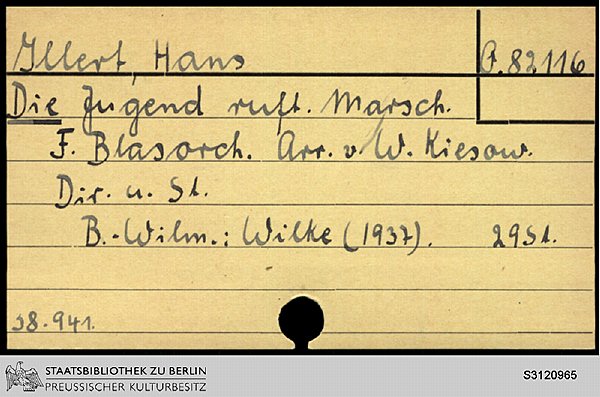 Illert, Hans
O.82116
Die Jugend ruft. Marsch.
F. Blasorch. Arr. v. W. Kiesow.
Dir. u. St.
B.-Wilm.: Wilke (1937). 29 St.
38.941.
STAATSBIBLIOTHEK ZU BERLIN
PREUSSISCHER KULTURBESITZ
S3120965